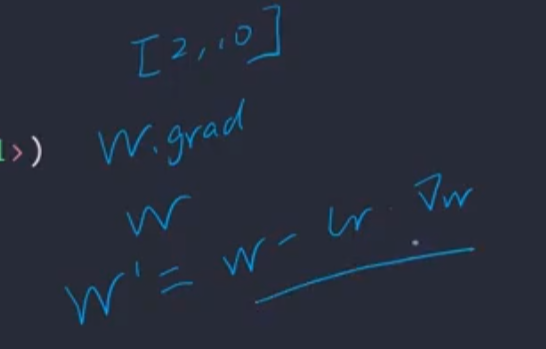 [2, 10]
l>) W.grad
W
W' = W - lr · ∇W